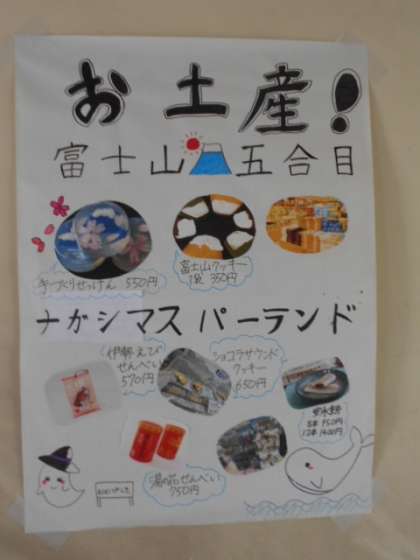 お土産!
富士山 五合目
手づくりせっけん 550円
富士山クッキー
1袋 350円
ナガシマス パーランド
伊勢えび
せんべい
570円
ショコラサウンド
クッキー
650円
8本 950円
12本 1400円
湯の花せんべい
750円